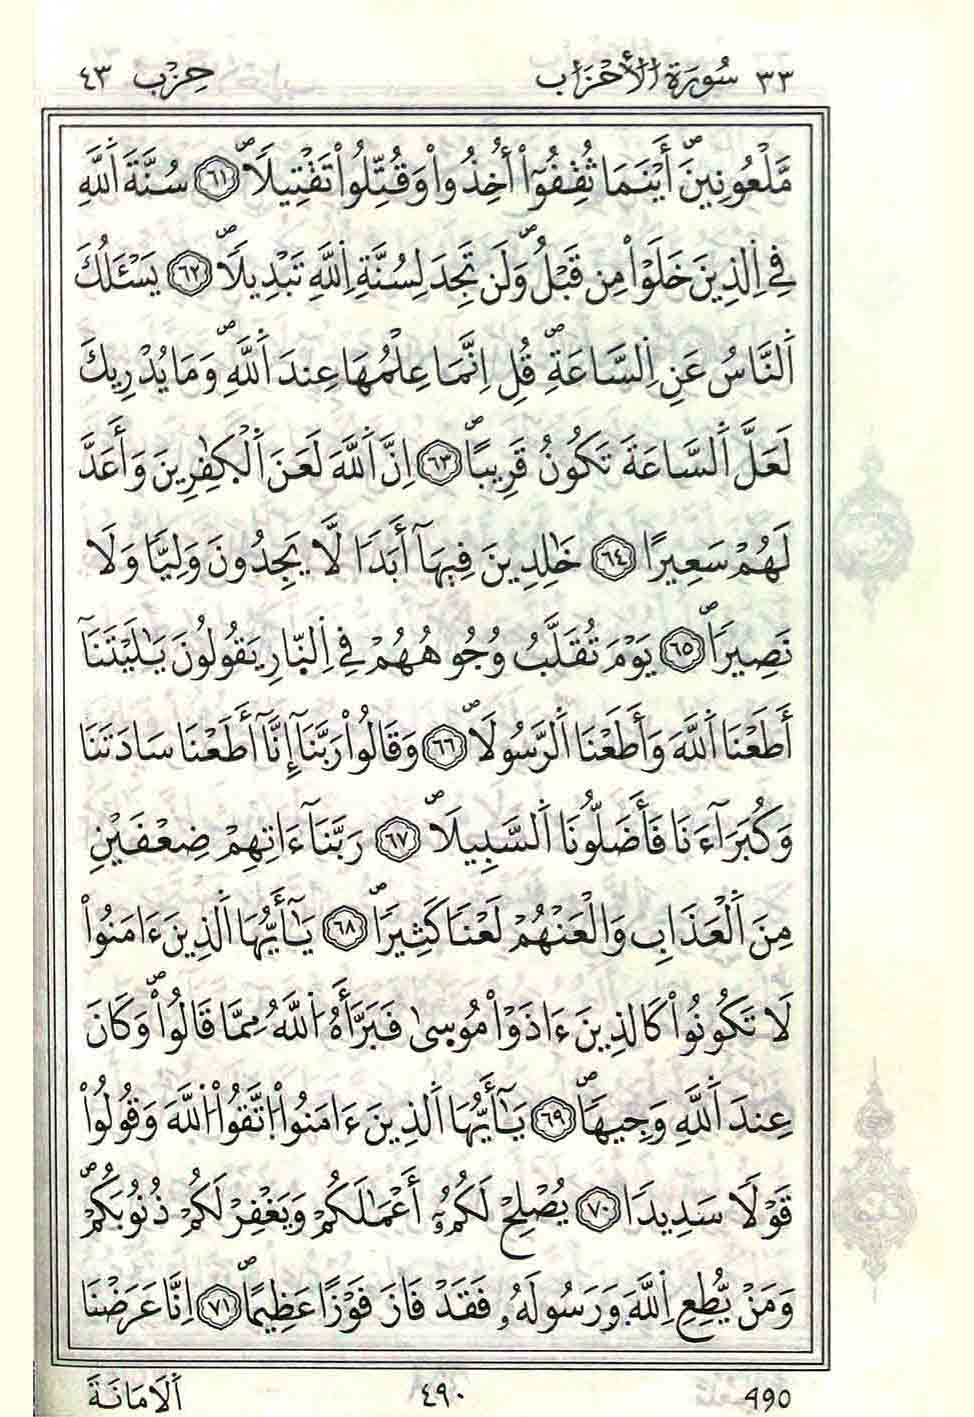 ٣٣ سُورَةُ الأَحْزَابِ حِزْب ٤٣
مَّلْعُونِينَۖ أَيْنَمَا ثُقِفُوٓاْ أُخِذُواْ وَقُتِّلُواْ تَقْتِيلاًۖ ٦١ سُنَّةَ اَللَّهِ
فِي اِلذِينَ خَلَوْاْ مِن قَبْلُۖ وَلَن تَجِدَ لِسُنَّةِ اِللَّهِ تَبْدِيلاًۖ ٦٢ يَسْـَٔلُكَ
اَلنَّاسُ عَنِ اِلسَّاعَةِۖ قُلِ اِنَّمَا عِلْمُهَا عِندَ اَللَّهِۖ وَمَا يُدْرِيكَ
لَعَلَّ اَلسَّاعَةَ تَكُونُ قَرِيباًۖ ٦٣ اِنَّ اَللَّهَ لَعَنَ اَلْكٰفِرِينَ وَأَعَدَّ
لَهُمْ سَعِيراً ٦٤ خَٰلِدِينَ فِيهَآ أَبَداً لَّا يَجِدُونَ وَلِيّاً وَلَا
نَصِيراًۖ ٦٥ يَوْمَ تُقَلَّبُ وُجُوهُهُمْ فِي اِلنّ۪ارِ يَقُولُونَ يَٰلَيْتَنَآ
أَطَعْنَا اَللَّهَ وَأَطَعْنَا اَلرَّسُولَاۖ ٦٦ وَقَالُواْ رَبَّنَآ إِنَّآ أَطَعْنَا سَادَتَنَا
وَكُبَرَآءَنَا فَأَضَلُّونَا اَلسَّبِيلَاۖ ٦٧ رَبَّنَآ ءَاتِهِمْ ضِعْفَيْنِ
مِنَ اَلْعَذَابِ وَالْعَنْهُمْ لَعْناً كَثِيراًۖ ٦٨ يَٰٓأَيُّهَا اَلذِينَ ءَامَنُواْ
لَا تَكُونُواْ كَالذِينَ ءَاذَوْاْ مُوس۪ىٰ فَبَرَّأَهُ اَللَّهُ مِمَّا قَالُواْۖ وَكَانَ
عِندَ اَللَّهِ وَجِيهاًۖ ٦٩ يَٰٓأَيُّهَا اَلذِينَ ءَامَنُواْ اُتَّقُواْ اُللَّهَ وَقُولُواْ
قَوْلاً سَدِيداً ٧٠ يُصْلِحْ لَكُمُۥٓ أَعْمَٰلَكُمْ وَيَغْفِرْ لَكُمْ ذُنُوبَكُمْۖ
وَمَنْ يُّطِعِ اِللَّهَ وَرَسُولَهُۥ فَقَدْ فَازَ فَوْزاً عَظِيماًۖ ٧١ اِنَّا عَرَضْنَا
490 ٤٩٠ اَلَامَانَةَ